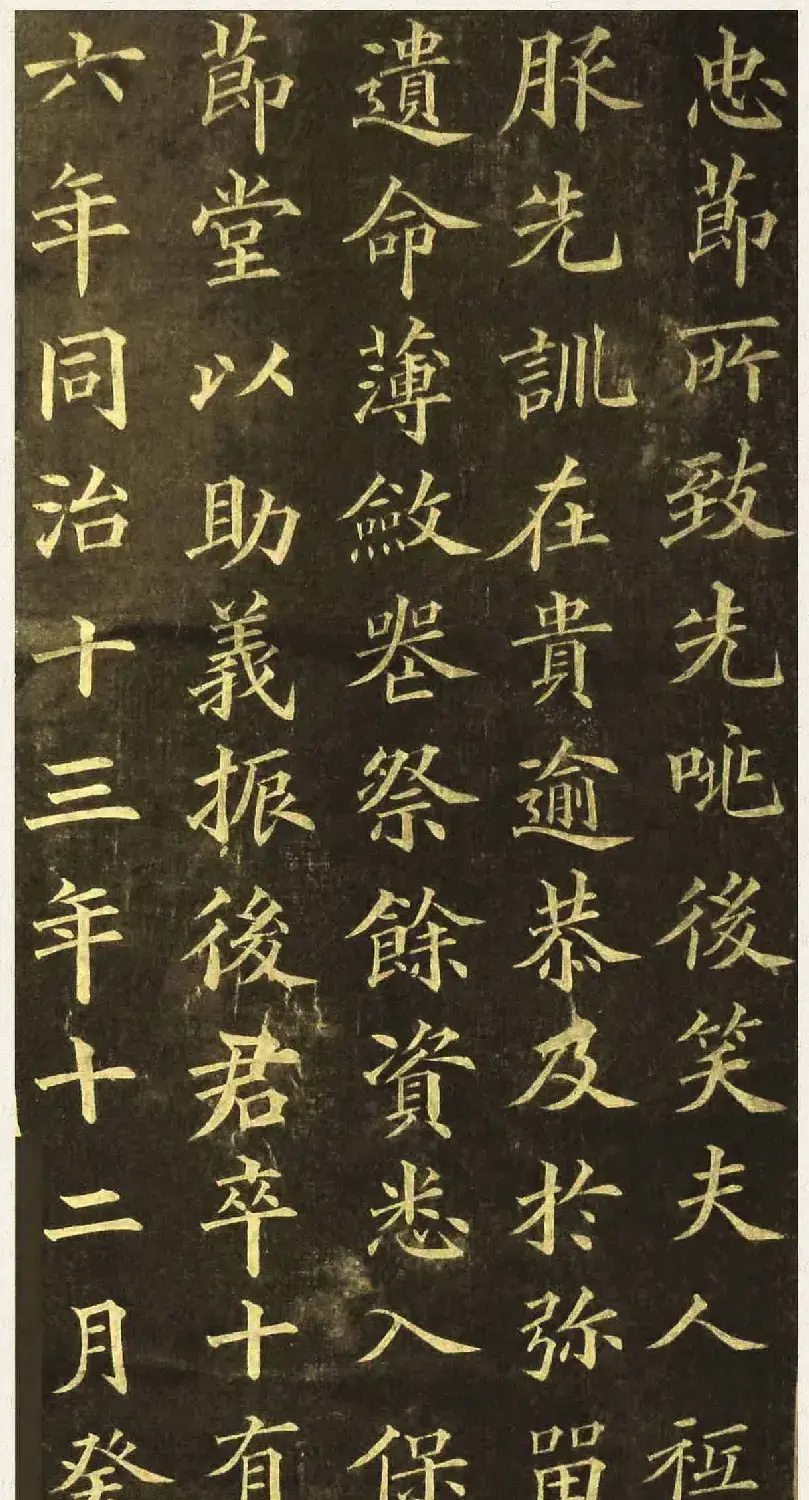 忠節所致先咷後笑夫人祗
服先訓在貴逾恭及於弥留
遺命薄斂器祭餘資悉入保
節堂以助義振後君卒十有
六年同治十三年十二月癸